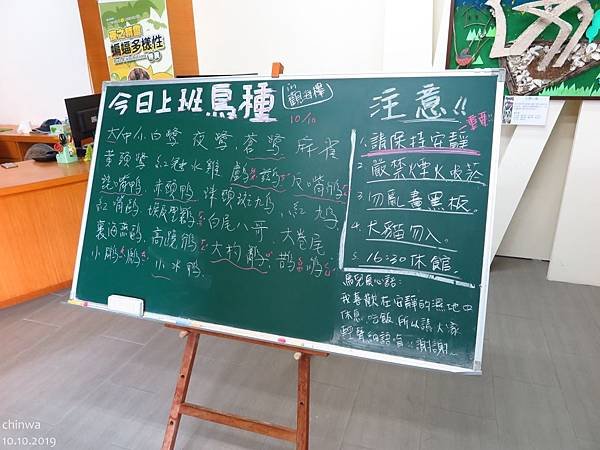 夜之精靈
蝙蝠多樣性
特展
今日上班鳥種
in 觀海樓
10/10
大中小白鷺 夜鷺、蒼鷺 麻雀
黃頭鷺 紅冠水雞 鸕鶿 反嘴鴴
琵嘴鴨 赤頸鴨 珠頸斑九鳥 紅九鳥
紅嘴鷗 埃及聖䴉 白尾八哥、大卷尾
裏海燕鷗 高蹺鴴 大杓鷸 鵲鴝
小鸊鷉 小水鴨
注意!!
重要
1. 請保持安靜
2. 嚴禁煙火
3. 勿亂畫黑板
4. 犬貓勿入
5. 16:30休館
鳥兒良心語:
我喜歡在安靜的濕地中
休息、吃飯 所以請大家
輕聲細語唷 謝謝~
chinwa
10.10.2019